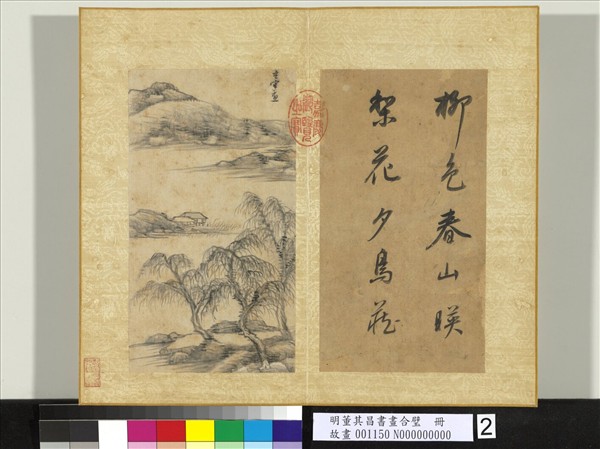 柳色春山暎
梨花夕鳥藏
玄宰畫
明董其昌書畫合璧　冊
故畫001150 N000000000
2